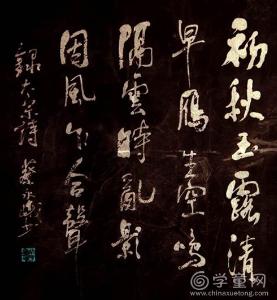 初秋玉露清
早鴈出空鳴
隔雲時亂影
因風乍含聲
錄太宗詩 蔡
学童网
www.chinaxuetong.com